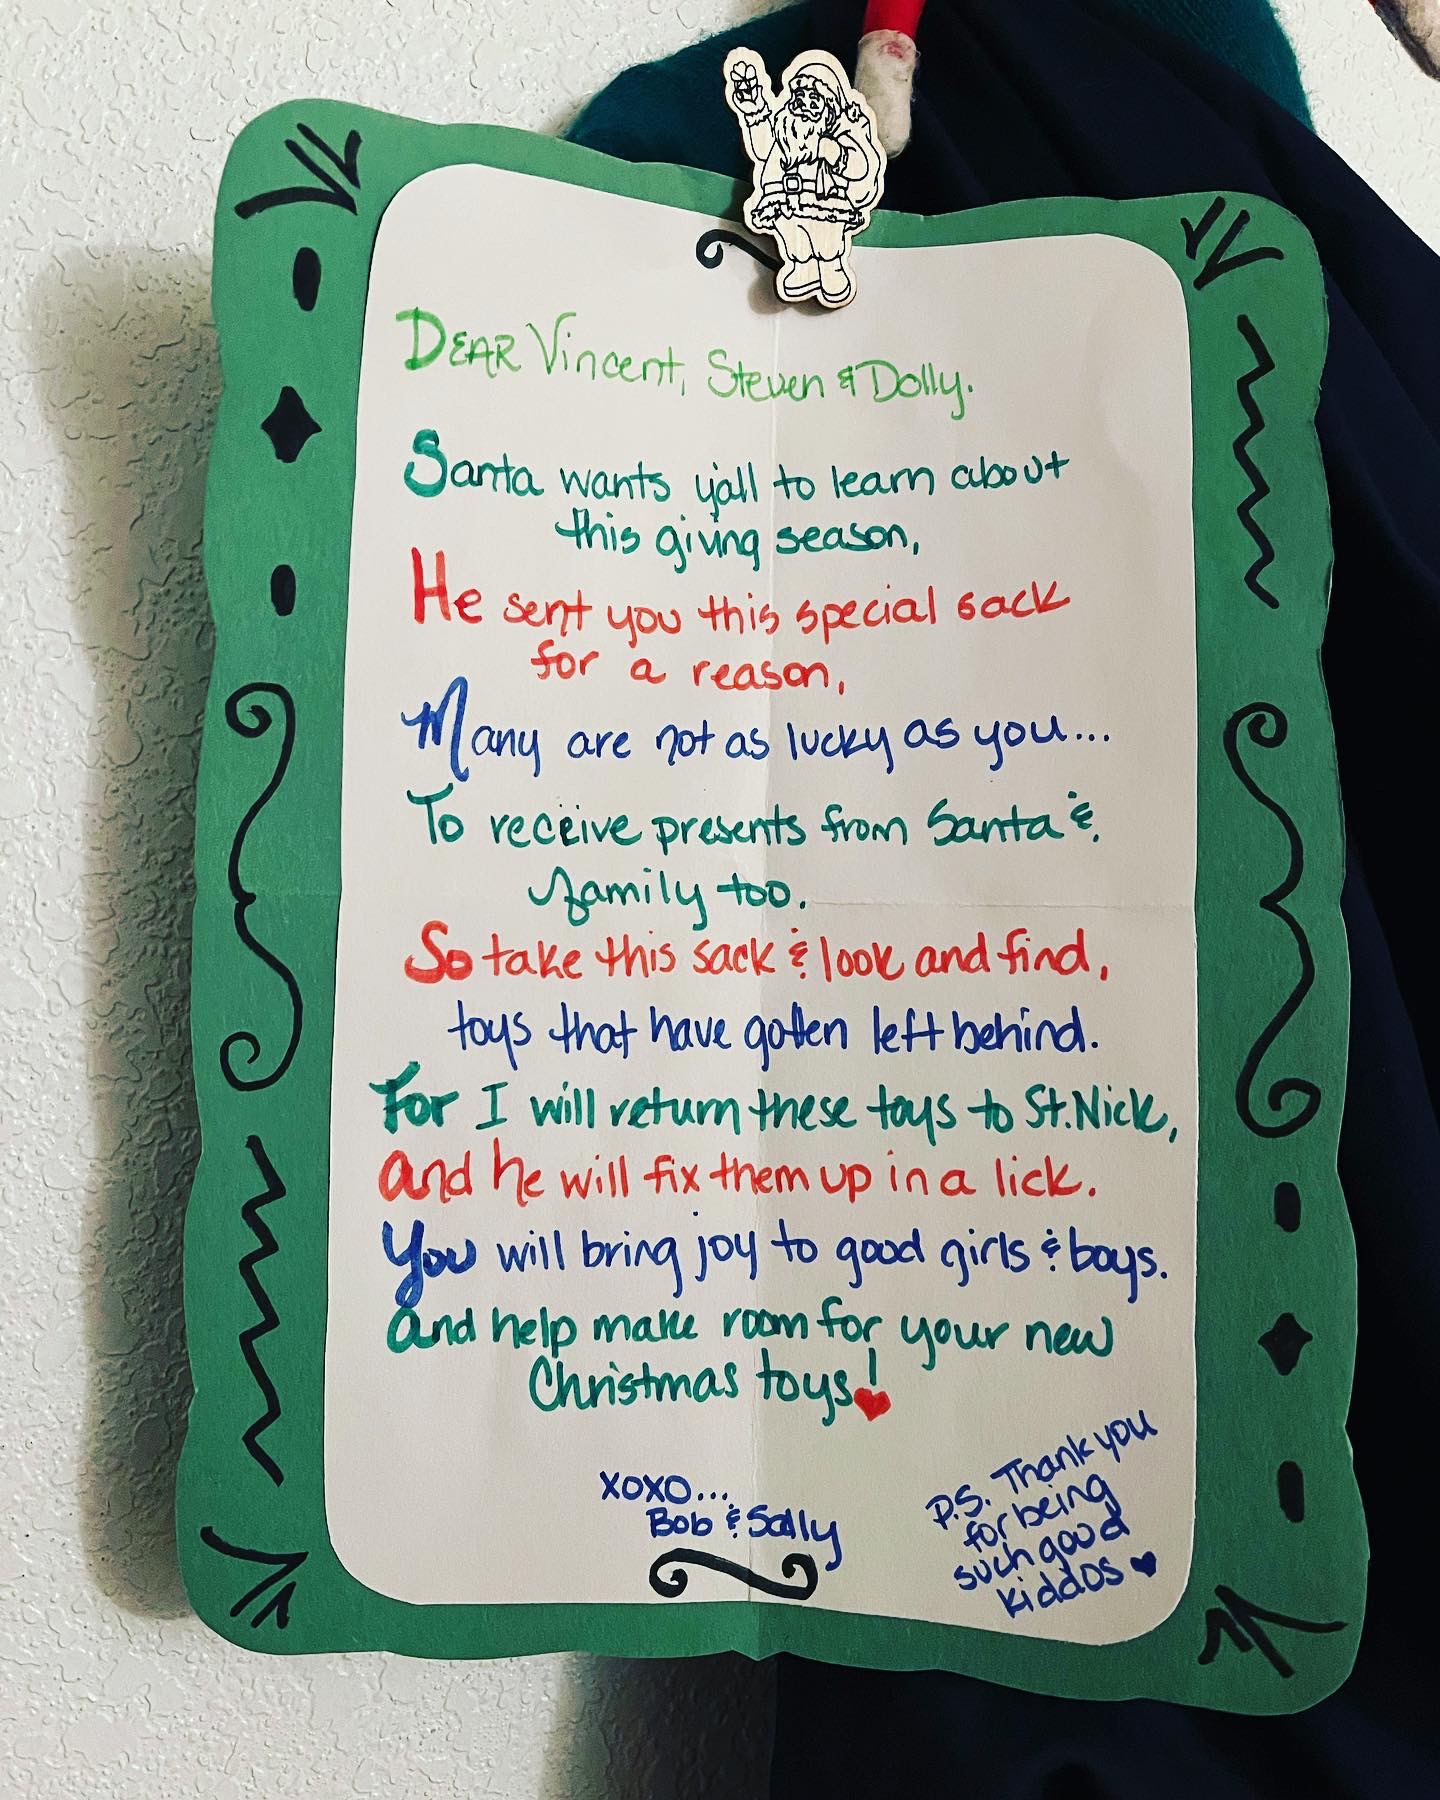 DEAR Vincent, Steven & Dolly.
Santa wants y'all to learn about
this giving season,
He sent you this special sack
for a reason,
Many are not as lucky as you...
To receive presents from Santa &
family too.
So take this sack & look and find,
toys that have gotten left behind.
For I will return these toys to St. Nick,
and he will fix them up in a lick.
You will bring joy to good girls & boys.
and help make room for your new
Christmas toys!
xoxo...
Bob & Sally
P.S. Thank you
for being
such good
kiddos